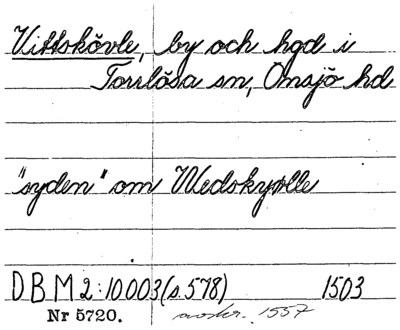 Vittskövle, by och hgd i
Torrlösa sn, Onsjö hd
"syden" om Wedskyølle
D B M 2:10.003 (s. 578) 1503
Nr 5720. avskr. 1557